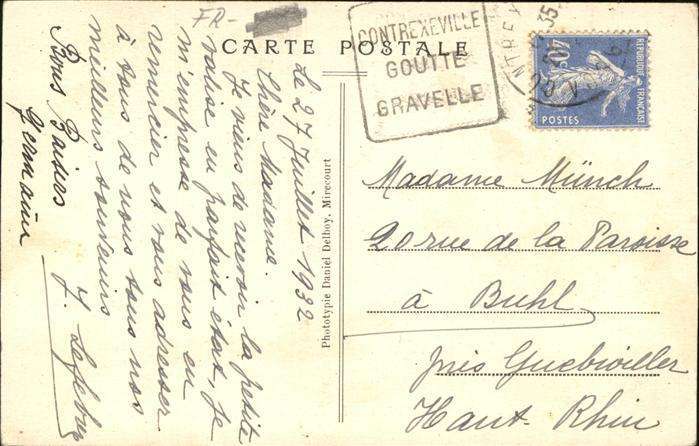 FR-
CARTE POSTALE
CONTREXEVILLE
GOUTTE
GRAVELLE
35
REPUBLIQUE FRANÇAISE
40c
POSTES
Le 27 Juillet 1932
Chère Madame.
Je viens de recevoir la petite
valise en parfait état, je
m'empresse de vous en
remercier et vous adresser
à tous de nous tous nos
meilleurs souvenirs
J. Lefebvre
Bons Baisers
Germaine
Phototypie Daniel Delboy, Mirecourt
Madame Münch
20 rue de la Paroisse
à Buhl
près Guebwiller
Haut-Rhin